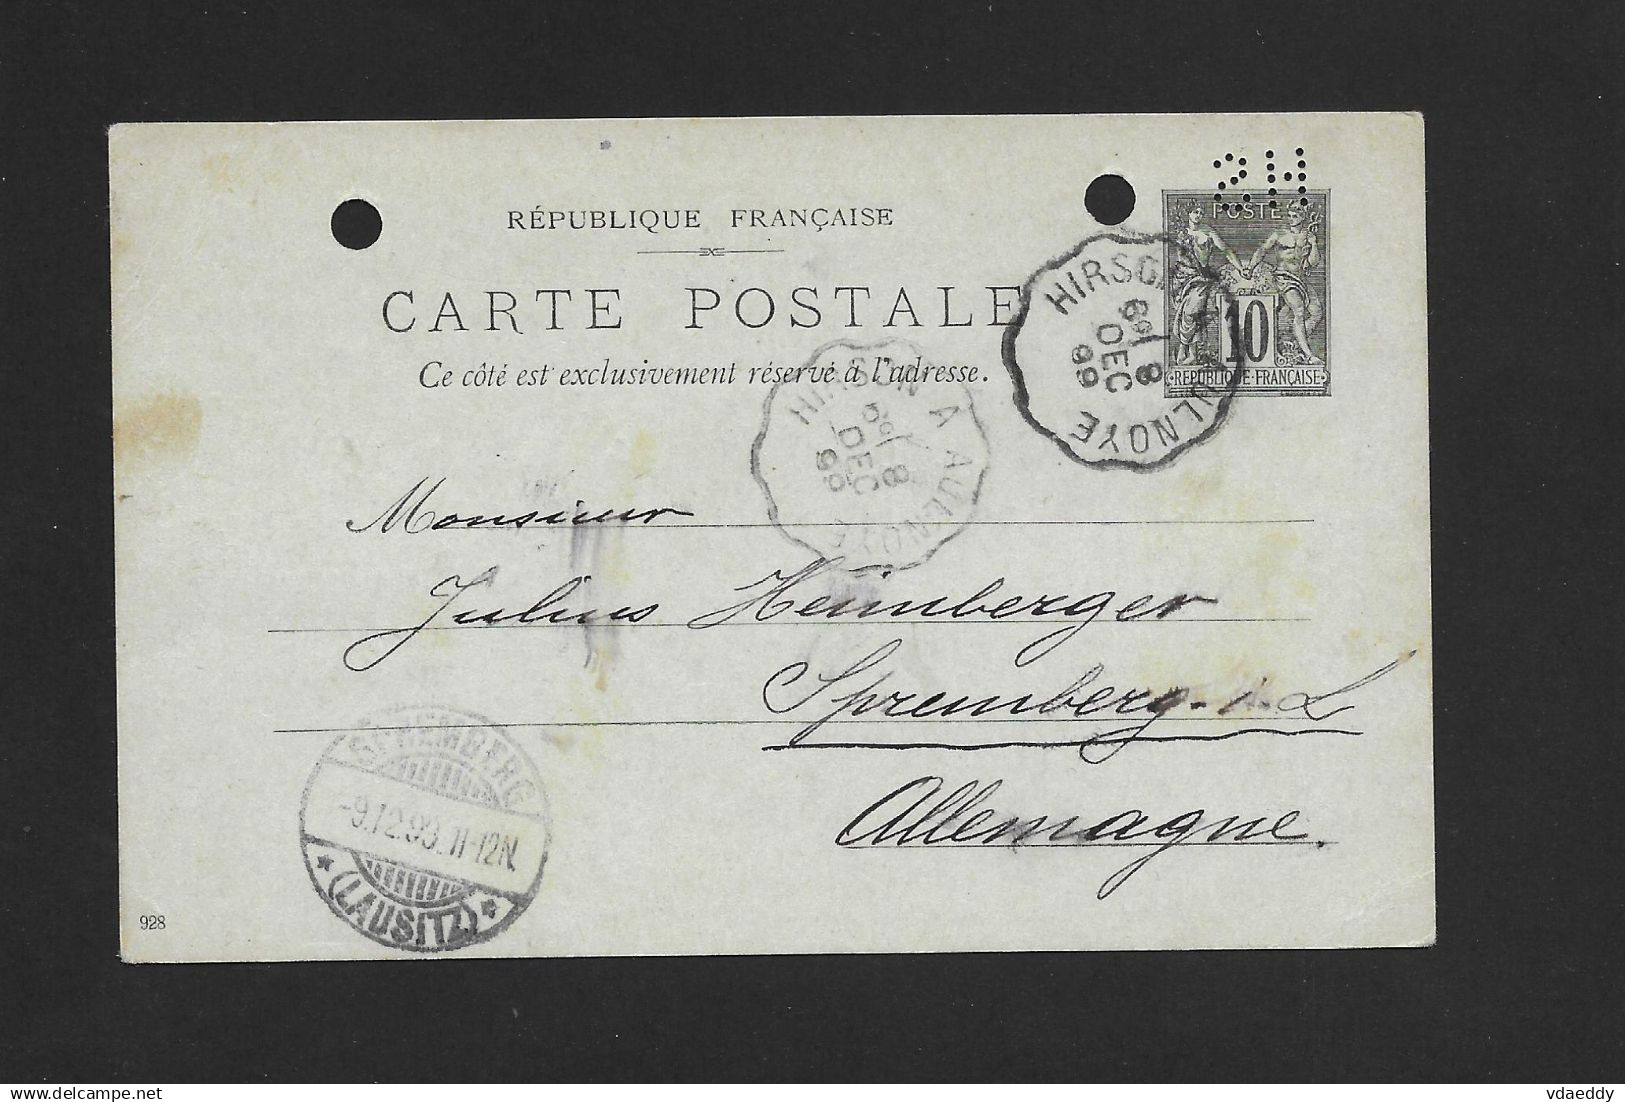 SH
RÉPUBLIQUE FRANÇAISE
CARTE POSTALE
Ce côté est exclusivement réservé à l'adresse.
POSTE
10
RÉPUBLIQUE·FRANÇAISE
HIRSON
AULNOYE
8
DEC
99
HIRSON A AULNOYE
8
DEC
99
Monsieur
Julius Heimberger
Spremberg. i. L
Allemagne.
SPREMBERG
-9.12.99.11-12N.
(LAUSITZ)
928
Delcampe.net
vdaeddy